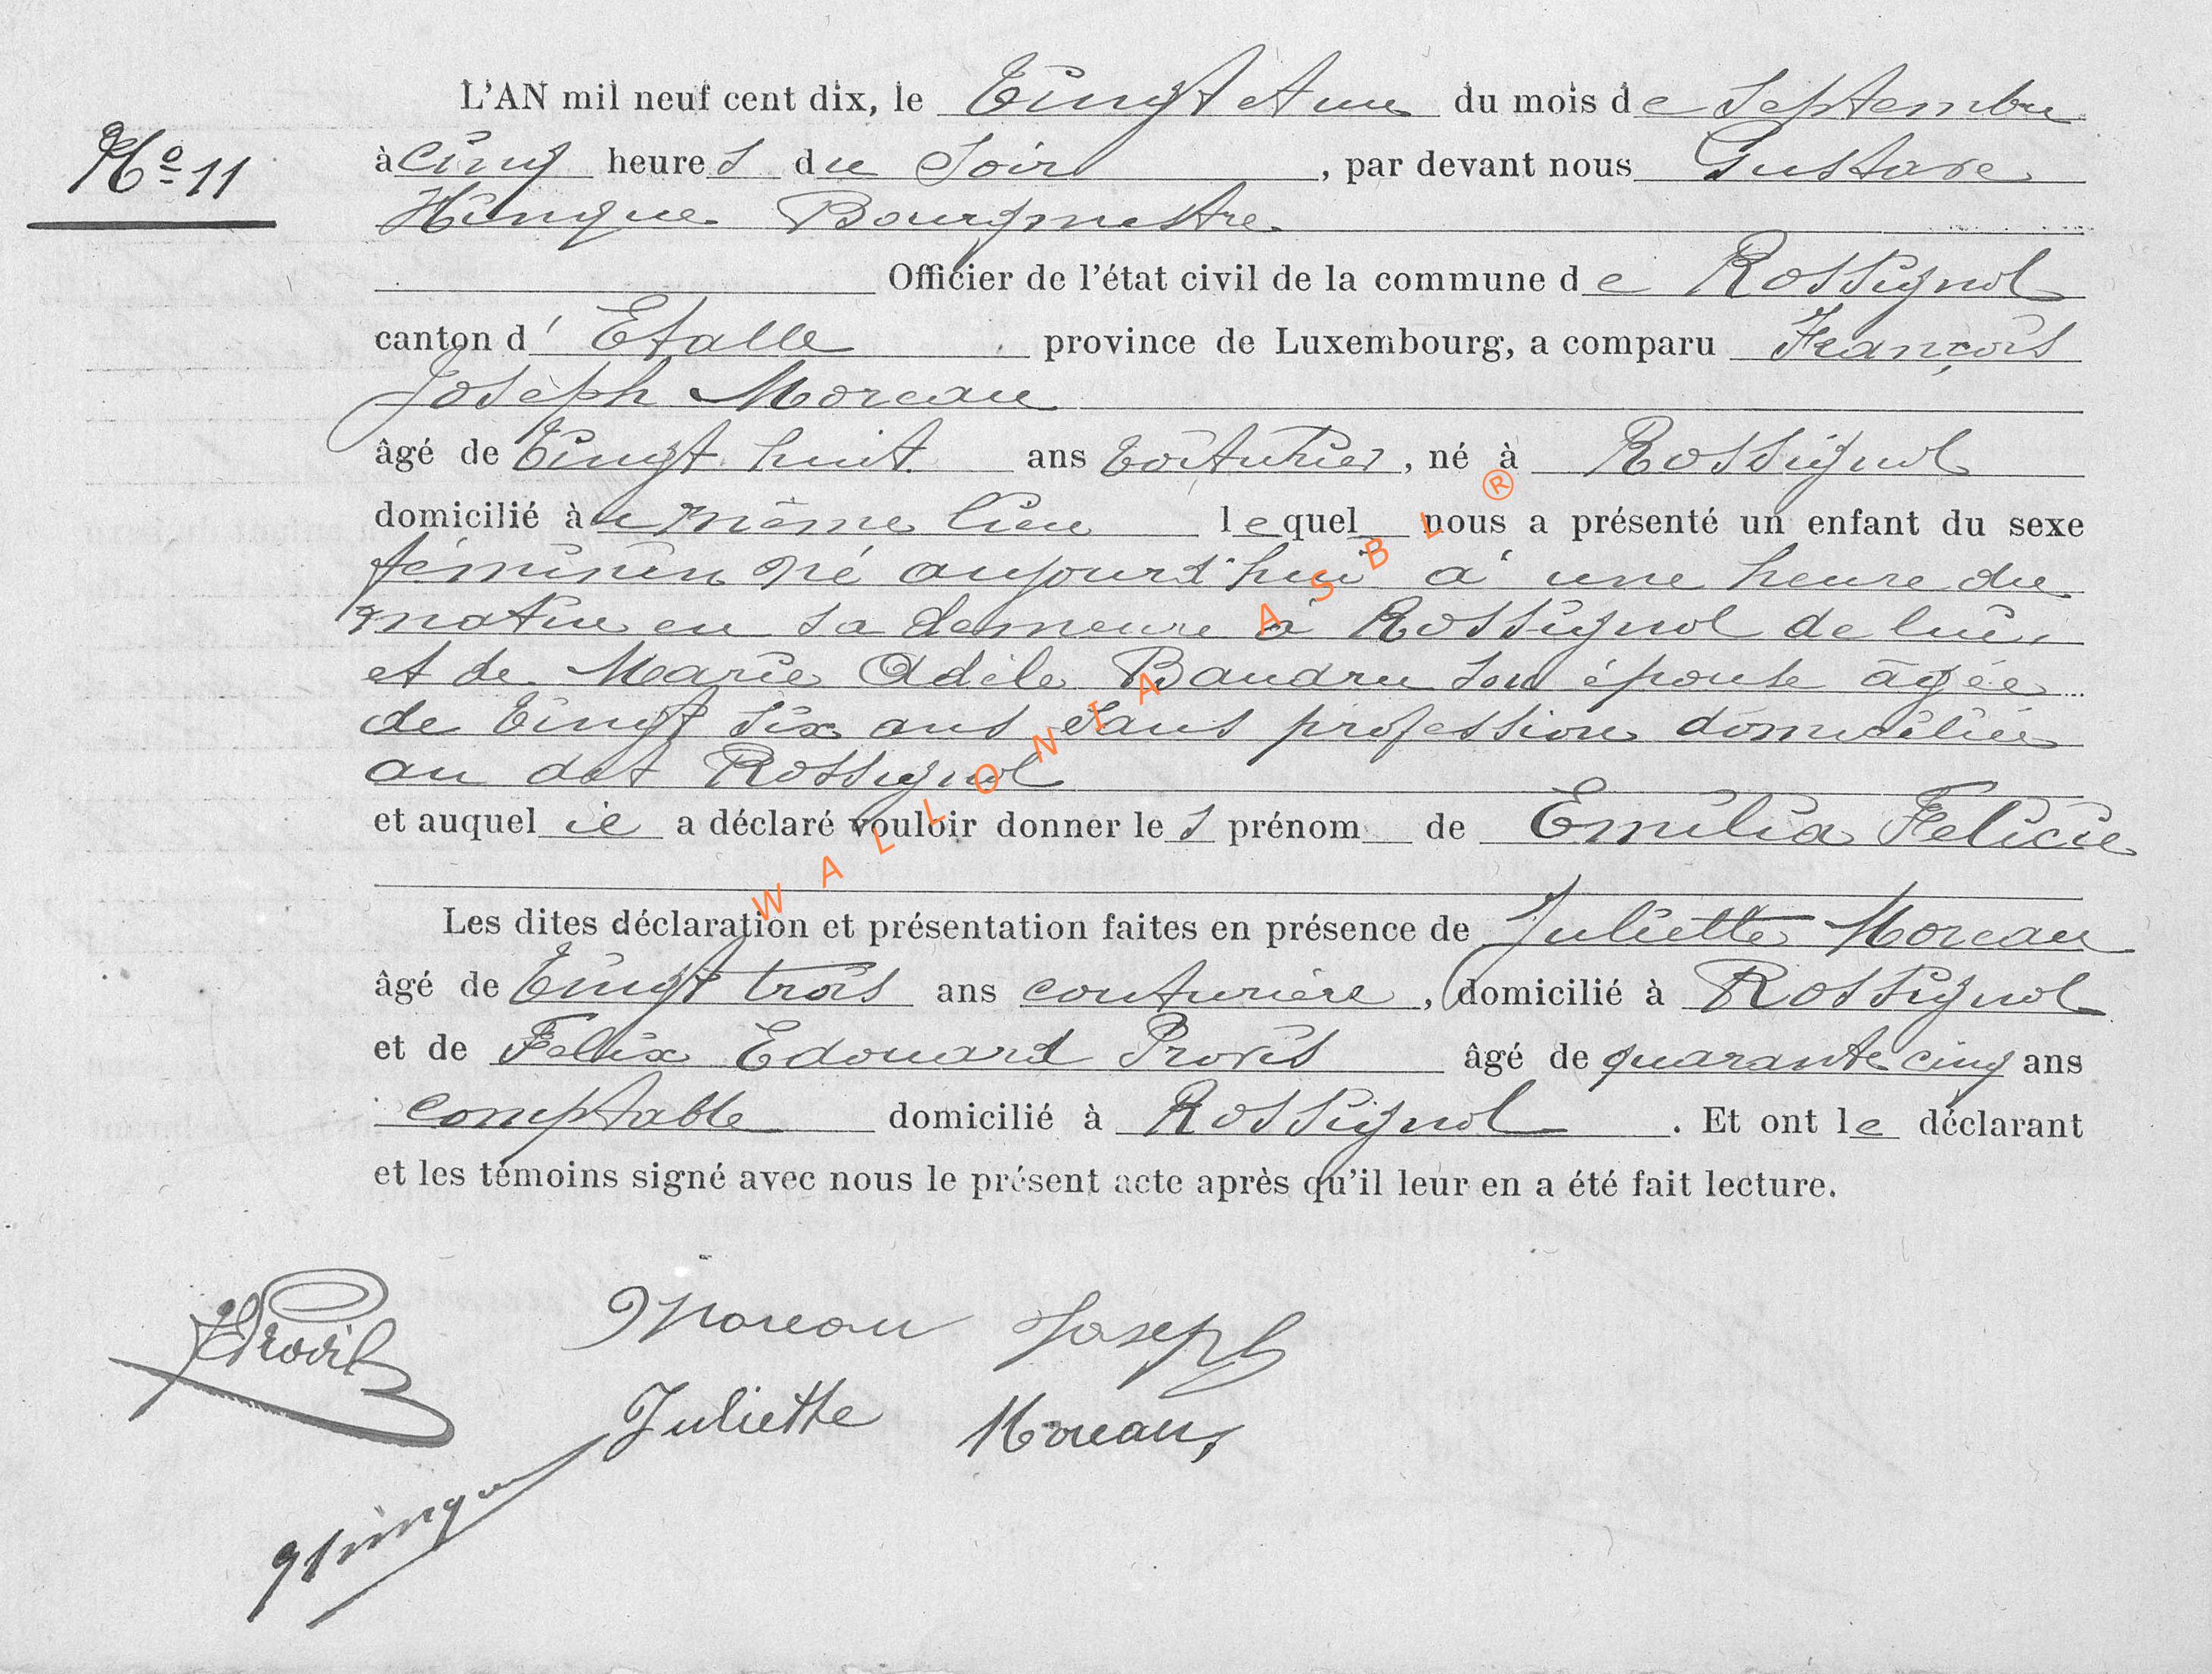 L'AN mil neuf cent dix, le Vingt et un du mois de Septembre
N° 11
à cinq heures du Soir, par devant nous Gustave
Hinque Bourgmestre
Officier de l'état civil de la commune de Rossignol
canton d'Etalle province de Luxembourg, a comparu François
Joseph Moreau
âgé de Vingt huit ans voiturier, né à Rossignol
domicilié au même lieu lequel nous a présenté un enfant du sexe
féminin né aujourd'hui à une heure du
matin en sa demeure à Rossignol de lui
et de Marie Adèle Baudru son épouse âgée
de Vingt six ans sans profession domiciliée
au dit Rossignol
et auquel il a déclaré vouloir donner les prénom de Emilia Felicie
Les dites déclaration et présentation faites en présence de Juliette Moreau
âgé de Vingt trois ans couturière, domicilié à Rossignol
et de Felix Edouard Provis âgé de quarante cinq ans
comptable domicilié à Rossignol. Et ont le déclarant
et les témoins signé avec nous le présent acte après qu'il leur en a été fait lecture.
Moreau Joseph
Juliette Moreau
Hinque
WALLONIA ASBL ®